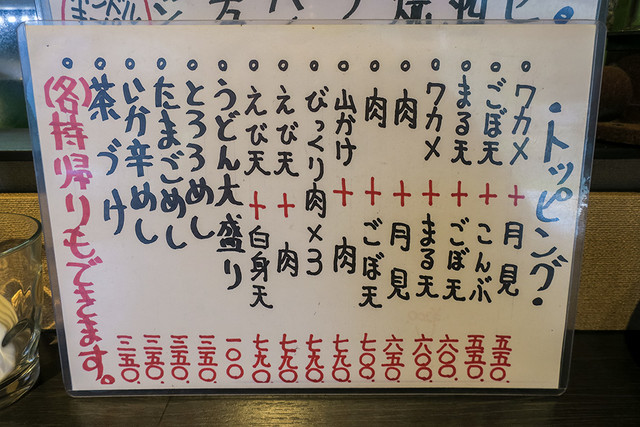 ・トッピング・
。ワカメ+月見 五五〇.
。ごぼ天+こんぶ 五五〇.
。まる天+ごぼ天 六〇〇.
。ワカメ+まる天 六〇〇.
。肉+月見 六五〇.
。肉+ごぼ天 七〇〇.
。山かけ+肉 七九〇.
。びっくり肉×3 七九〇.
。えび天+肉 七九〇.
。えび天+白身天 七九〇.
。うどん大盛り 一〇〇.
。とろろめし 三五〇.
。たまごめし 三五〇.
。いか辛めし 三五〇.
。茶づけ 三五〇.
(各)持帰りもできます。